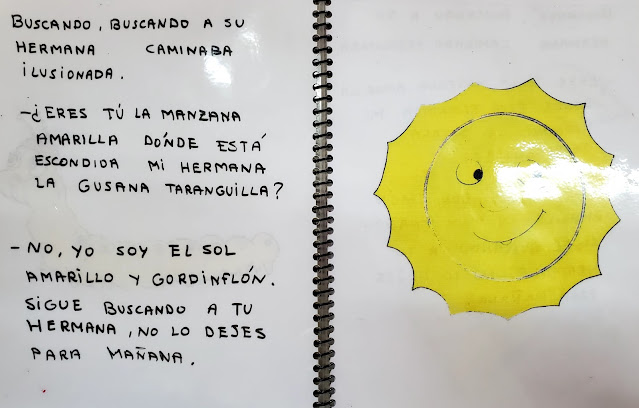 BUSCANDO, BUSCANDO A SU
HERMANA CAMINABA
ILUSIONADA.
-¿ERES TÚ LA MANZANA
AMARILLA DÓNDE ESTÁ
ESCONDIDA MI HERMANA
LA GUSANA TARANGUILLA?
- NO, YO SOY EL SOL
AMARILLO Y GORDINFLÓN.
SIGUE BUSCANDO A TU
HERMANA, NO LO DEJES
PARA MAÑANA.